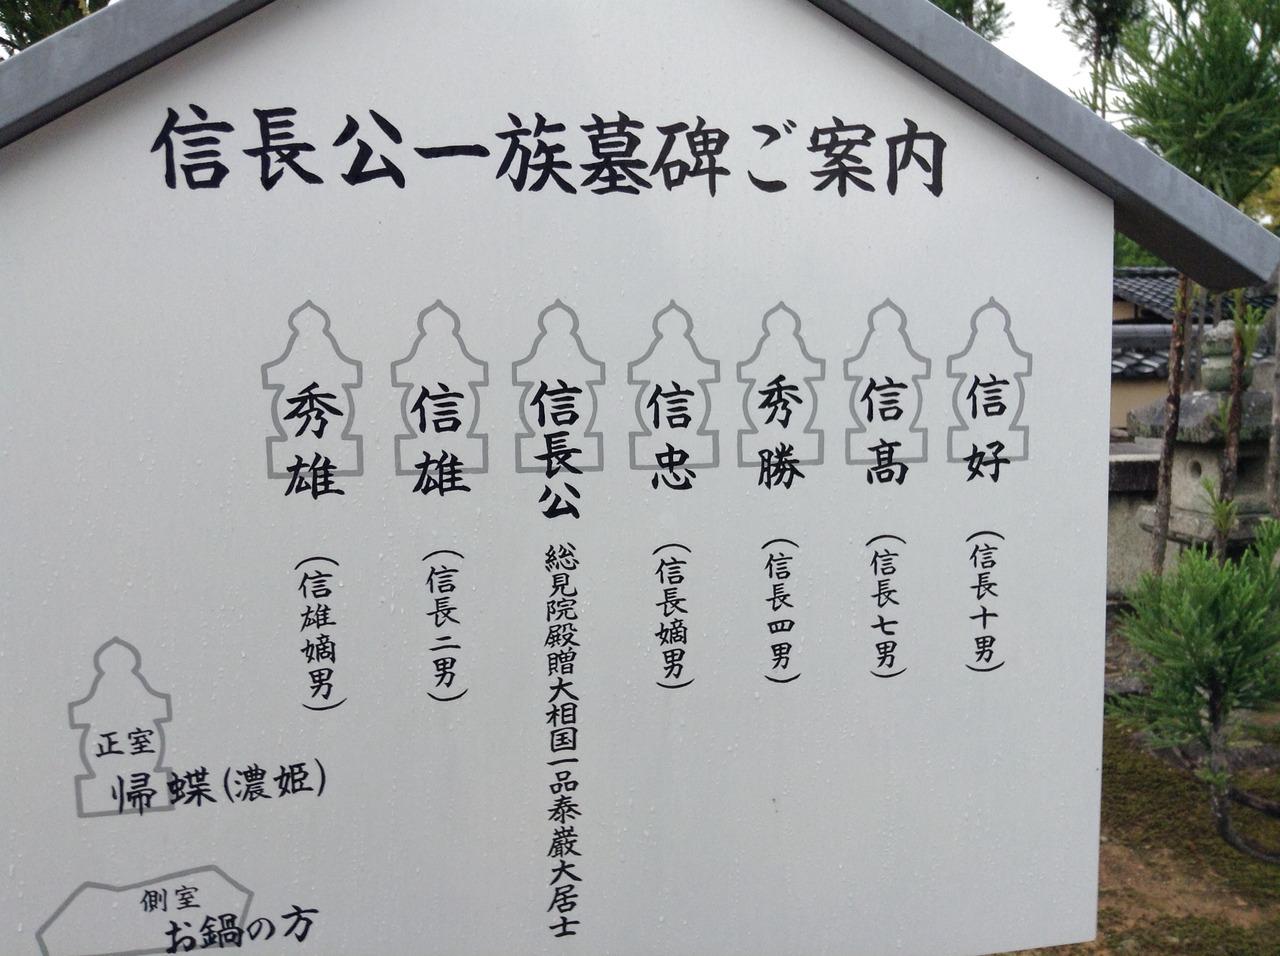 信長公一族墓碑ご案内
信好
（信長十男）
信高
（信長七男）
秀勝
（信長四男）
信忠
（信長嫡男）
信長公
総見院殿贈大相国一品泰巌大居士
信雄
（信長二男）
秀雄
（信雄嫡男）
正室
帰蝶(濃姫)
側室
お鍋の方